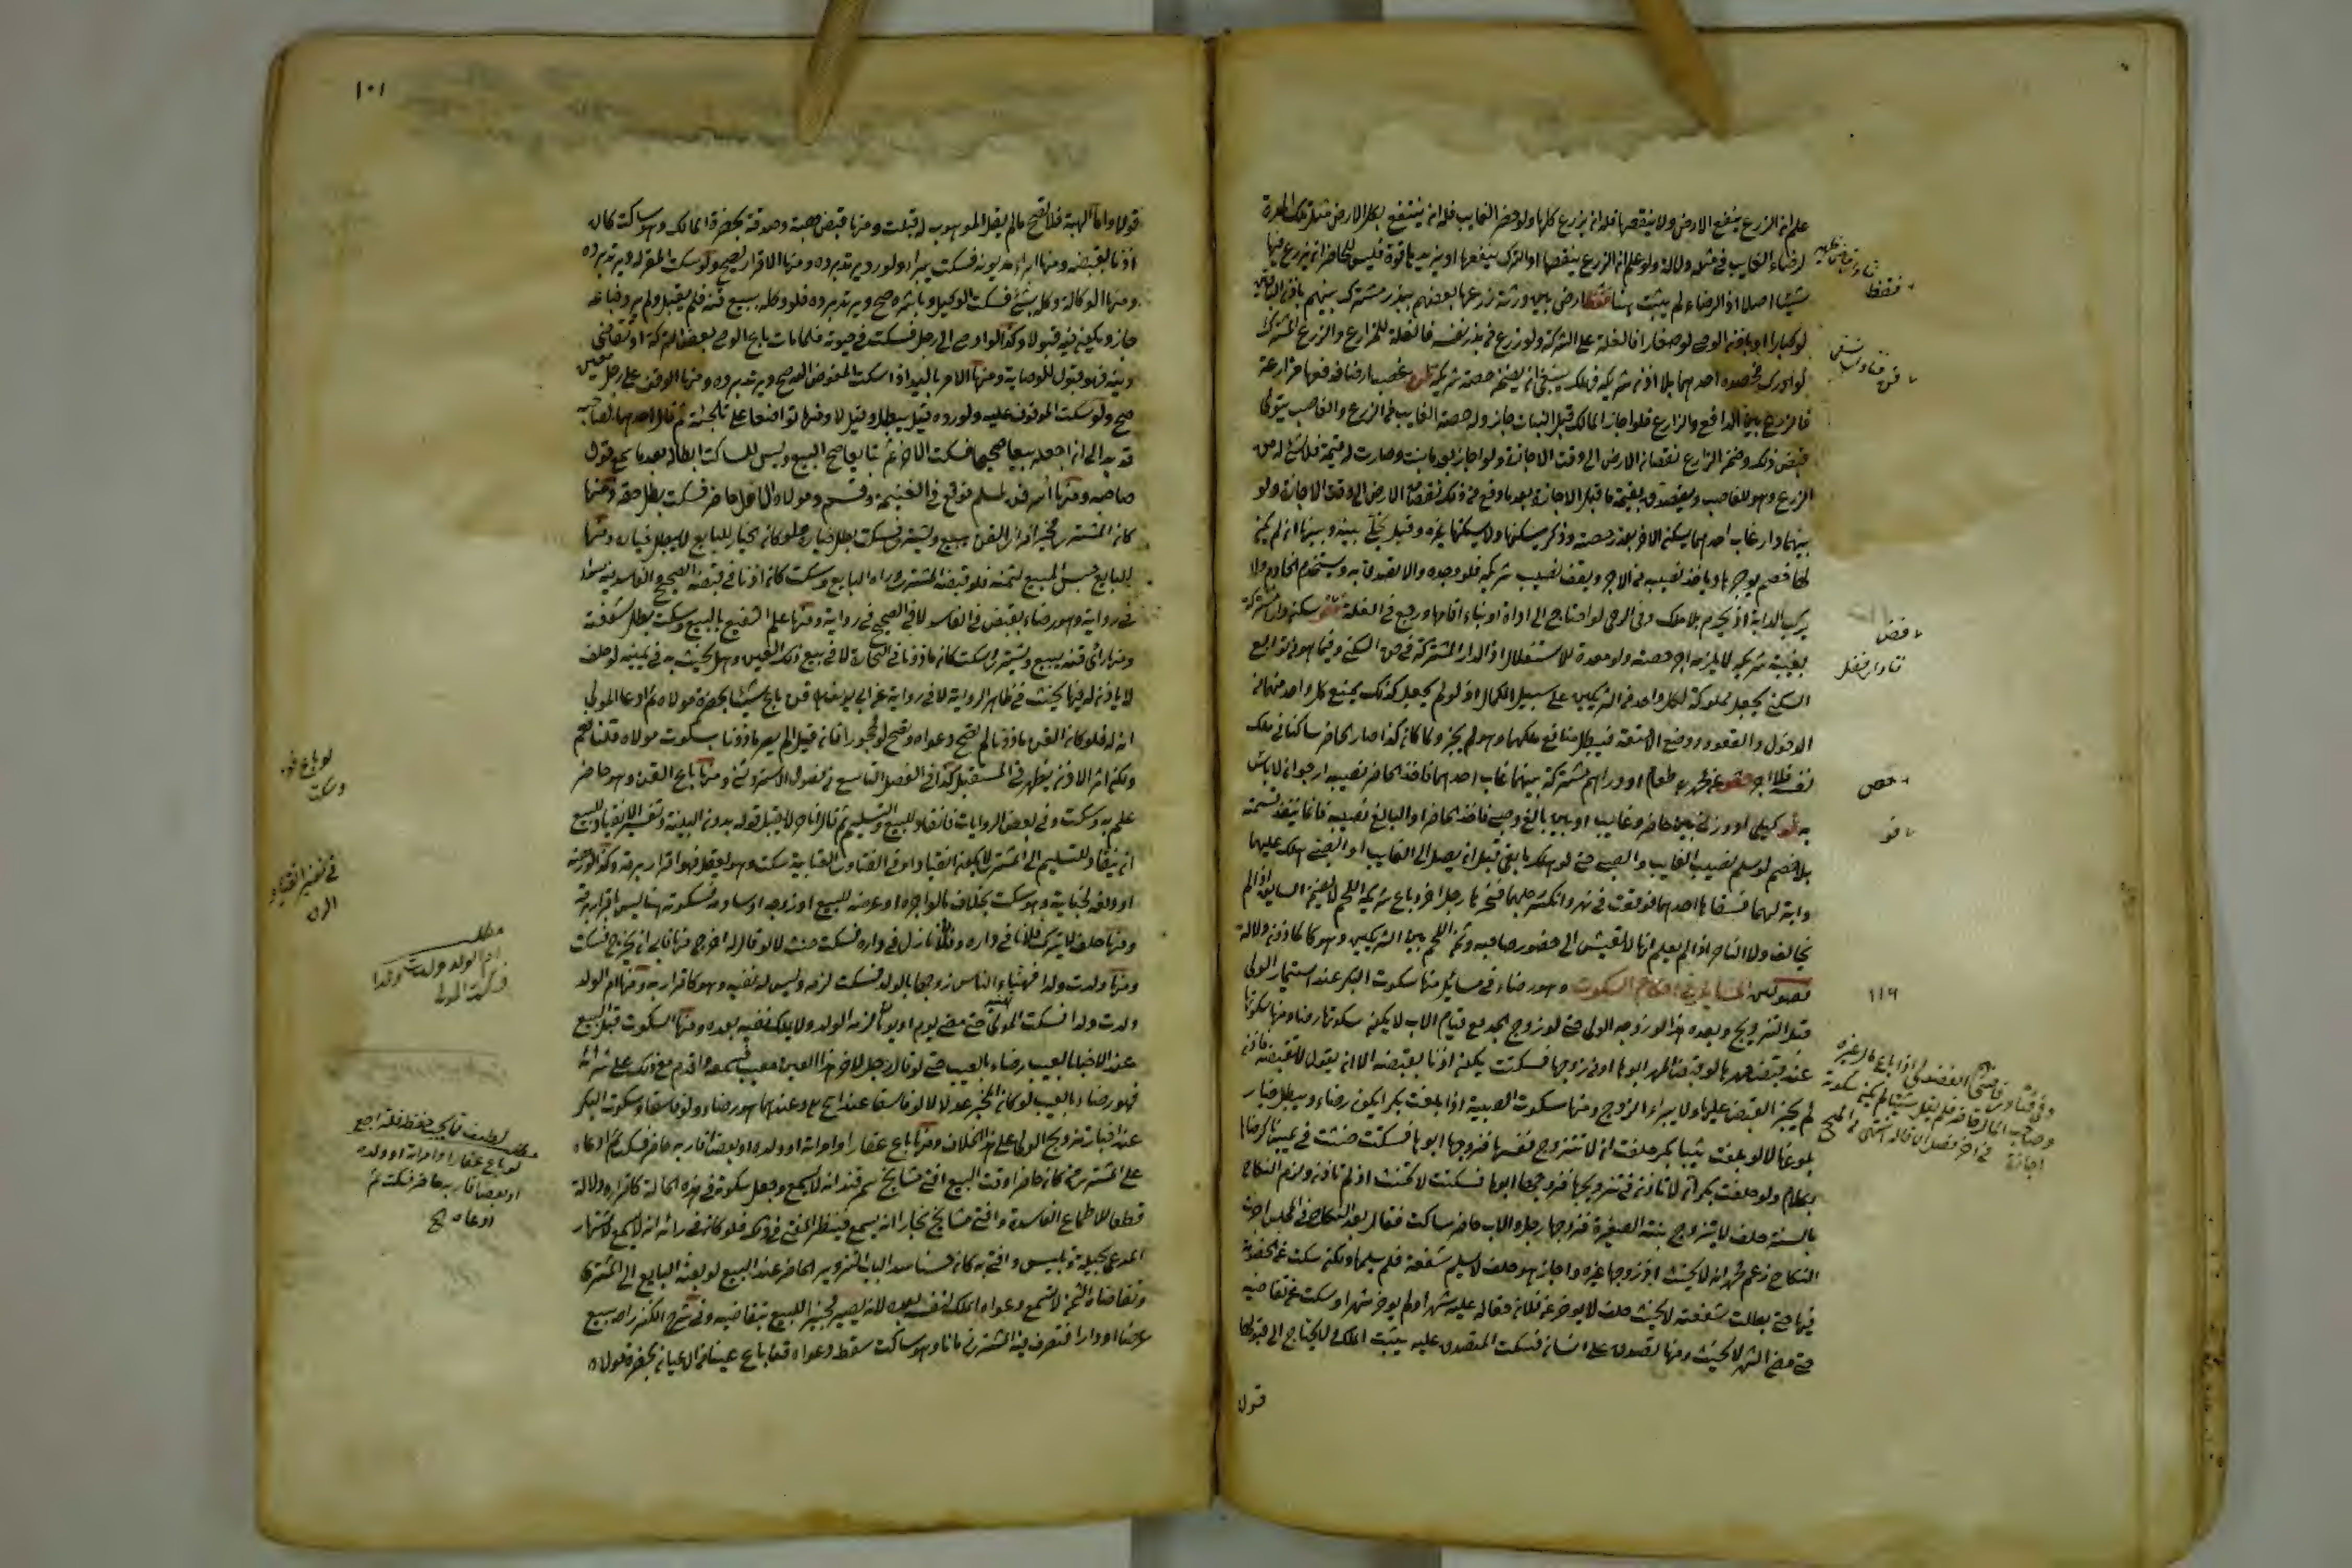 علم ان الزرع ينفع الارض ولا ينقصها فله ان يزرع كلها ولو حضر الغايب فله ان ينتفع بكل الارض مثل تلك المدة
لرضاء الغايب في مثله دلالة ولو علم ان الزرع ينقصها او الترك ينفعها او يزيدها قوة فليس للحاضر ان يزرع فيها
شيئا اصلا اذ الرضاء لم يثبت هنا ارض بين ورثة زرعها بعضهم ببذر مشترك بينهم باذن الباقين
لو كبارا او باذن الوصي لو صغارا فالغلة على الشركة ولو زرع من بذر نفسه فالغلة للزارع والزرع المشترك
لو ادرك فحصده احدهما بلا اذن شريكه فهلك ينبغي ان يضمن حصة شريكه غصب ارضا فدفعها مزارعة
فالزرع بين الدافع والزارع فلو اجاز المالك قبل النبات جاز وله حصة الغاصب من الزرع والغاصب يتولى
قبض ذلك وضمن الزارع نقصان الارض الى وقت الاجازة ولو اجاز بعد ما نبت وصارت له قيمة فلا شئ له من
الزرع وهو للغاصب ويتصدق بقيمة ما قبل الاجازة بعد ما دفع من ذلك نقصان الارض الى وقت الاجازة ولو
بينهما دار غاب احدهما يسكن الاخر بقدر حصته وذكر يسكنها ولا يسكنها غيره وقيل يخلى بينه وبينها ان لم يكن
لها خصم يوجرها وياخذ نصيبه من الاجر ويقف نصيب شريكه فلو وجده والا تصدق به ويستخدم الخادم ولا
يركب الدابة اذ يحرم بلا ملك وفي الرحى لو احتاج الى اداة او بناء اقامها ورجع في الغلة سكن دارا مشتركة
بغيبة شريكه لا يلزمه اجر حصته ولو معدة للاستغلال اذ الدار المشتركة في حق السكنى وفيما هو من توابع
السكنى يجعل مملوكة لكل واحد من الشريكين على سبيل الكمال اذ لو لم يجعل كذلك يمنع كل واحد منهما من
الدخول والقعود ووضع الامتعة فيبطل منافع ملكهما وهو لم يجز ولما كان كذا صار الحاضر ساكنا في ملك
نفسه فلا اجر عن محمد طعام او دراهم مشتركة بينهما غاب احدهما فاخذ الحاضر نصيبه ارجو ان لا باس
به كيلي او وزني بين حاضر وغايب او بين بالغ وصبي فاخذ الحاضر او البالغ نصيبه فانما تنفذ قسمته
بلا خصم لو سلم نصيب الغايب والصبي حتى لو هلك ما بقي قبل ان يصل الى الغايب او الصبي هلك عليهما
دابة لهما فسقاها احدهما فوقعت في نهر وانكسر رجلها فنحرها رجل اخر وباع شريكه اللحم لا يضمن الساقي اذ لم
يخالف ولا الناحر اذ لم يعلم انها لا تعيش الى حضور صاحبه وثمن اللحم بين الشريكين وهو كالماذون دلالة
المسائل في احكام السكوت وهو رضاء في مسائل منها سكوت البكر عند استيمار الولي
قبل التزويج وبعده هذا لو زوجه الولي حتى لو زوج الجد مع قيام الاب لا يكون سكوتها رضا ومنها سكوتها
عند قبض مهرها لو قبض المهر ابوها او من زوجها فسكتت يكون اذنا بقبضه الا ان يقول لا تقبضه فاذن
لم يجز القبض عليها ولا يبراء الزوج ومنها سكوت الصبية اذا بلغت بكرا يكون رضاء ويبطل خيار
بلوغها لا لو بلغت ثيبا بكر حلفت ان لا تتزوج نفسها فزوجها ابوها فسكتت حنثت في يمينها لرضاها
بكلام ولو حلفت بكر ان لا تاذن في تزويجها فزوجها ابوها فسكتت لا تحنث اذ لم تاذن ولزم النكاح
بالسنة حلف لا يتزوج بنته الصغيرة فزوجها رجل والاب حاضر ساكت فقال بعد النكاح في المجلس اجزت
النكاح زعم محمد انه لا يحنث اذ زوجها غيره واجاز هو حلف لا يسلم شفعة فلم يسلمها ولكن سكت عن الخصومة
فيها حتى بطلت شفعته لا يحنث حلف لا يوخر عن فلان حقاله عليه شهرا ولم يوخر شهرا وسكت عن تقاضيه
حتى مضى الشهر لا يحنث ومنها تصدق على انسان فسكت المتصدق عليه يثبت الملك ولا يحتاج الى قبوله
قولا
فقط
١١٩
١٠١
قولا واما الهبة فلا تصح ما لم يقل الموهوب له قبلت ومنها قبض هبة وصدقة بحضرة المالك وهو ساكت كان
اذنا بقبضه ومنها ابراء مديونه فسكت يبراء ولو رد يرتد برده ومنها الاقرار يصح ولو سكت المقر له ويرتد برده
ومنها الوكالة وكل بشئ فسكت الوكيل وباشره صح ويرتد برده فلو وكله ببيع قنه فلم يقبل ولم يرد فباعه
جاز ويكون قبولا وكذا لو اوصى الى رجل فسكت في حيوته فلما مات باع الوصي بعض التركة او تقاضى
دينه فهو قبول للوصاية ومنها الامر باليد اذا سكت المفوض اليه صح ويرتد برده ومنها الوقف على رجل معين
صح ولو سكت الموقوف عليه ولو رده قيل يبطل وقيل لا ومنها تواضعا على تلجئة ثم قال احدهما لصاحبه
قد بدا لي ان اجعله بيعا صحيحا فسكت الاخر ثم تبايعا صح البيع وليس للساكت ابطاله بعد ما سمع قول
صاحبه ومنها اسر قن لمسلم فوقع في الغنيمة وقسم ومولاه الاول حاضر فسكت بطل حقه ومنها
كان المشتري مخيرا فراى القن يبيع ويشتري فسكت بطل خياره ولو كان الخيار للبايع لا يبطل خياره ومنها
للبايع حبس المبيع لثمنه فلو قبضه المشتري وراه البايع وسكت كان اذنا في قبضه الصحيح والفاسد فيه سواء
في رواية وهو رضاء بقبض في الفاسد لا في الصحيح في رواية ومنها علم الشفيع بالبيع وسكت يبطل شفعته
ومنها راى قنه يبيع ويشتري فسكت كان ماذونا في التجارة لا في بيع ذلك العين وهل يحنث به في يمينه لو حلف
لا ياذن له فيها يحنث في ظاهر الرواية لا في رواية عن ابي يوسف قن باع شيئا بحضرة مولاه ثم ادعا المولى
انه له فلو كان القن ماذونا لم تصح دعواه وتصح لو محجورا فان قيل الم يصر ماذونا بسكوت مولاه قلنا نعم
ولكن اثر الاذن يظهر في المستقبل كذا في الفصل التاسع من فصول الاستروشني ومنها باع القن وهو حاضر
علم به وسكت وفي بعض الروايات فانقاد للبيع والتسليم ثم قال انا حر لا يقبل قوله بدون البينة وتفسير الانقياد للبيع
ان ينقاد للتسليم الى المشتري لا يكون انقيادا وفي الفتاوى العتابية سكت وهو يعقل فهو اقرار برقه وكذا لو رهنه
او دفعه لجناية وهو ساكت بخلاف ما لو اجره او عرضه للبيع او زوجه او ساومه فسكوته هنا ليس باقرار برقه
ومنها حلف لا يترك فلانا في داره وفلان نازل في داره فسكت حنث لا لو قال له اخرج منها فابى ان يخرج فسكت
ومنها ولدت ولدا فهنأه الناس زوجها بالولد فسكت لزمه وليس له نفيه وهو كاقراره به ومنها ام الولد
ولدت ولدا فسكت المولى حتى مضى يوم او يومان لزمه الولد ولا يملك نفيه بعده ومنها السكوت قبل البيع
عند الاخبار بالعيب رضاء بالعيب حتى لو قال رجل لاخر هذا العين معيب فسمعه واقدم مع ذلك على شرائه
فهو رضاء بالعيب لو كان المخبر عدلا لا لو فاسقا عند ابي ح وعندهما هو رضاء ولو فاسقا وسكوت البكر
عند اخبار تزويج الولي على هذا الخلاف ومنها باع عقارا وامراته او ولده او بعض اقاربه حاضر فسكت ثم ادعاه
على المشتري من كان حاضرا وقت البيع افتى مشايخ سمرقند انه لا يسمع وجعل سكوته في هذه الحالة كاقراره دلالة
قطعا للاطماع الفاسدة وافتى مشايخ بخارا انه يسمع فينظر المفتي في ذلك فلو كان في رائه انه لا يسمع لاشتهار
المدعي بحيلة وتلبيس وافتى به كان حسنا سدا لباب التزوير الحاضر عند البيع لو بعثه البايع الى المشتري
وتقاضاه الثمن لا تسمع دعواه الملك لنفسه بعده لانه يصير مجيزا للبيع بتقاضيه وفي شرح الكنز راه يبيع
عرضا او دارا فتصرف فيه المشتري زمانا وهو ساكت سقط دعواه باع عينا من الاعيان بحضرة مولاه
وسكت
في تفسير انقياد
مطلب
ام الولد ولدت ولدا
فسكت المولى
لو باع عقارا وامراته او ولده
او بعض اقاربه حاضر فسكت ثم
ادعاه